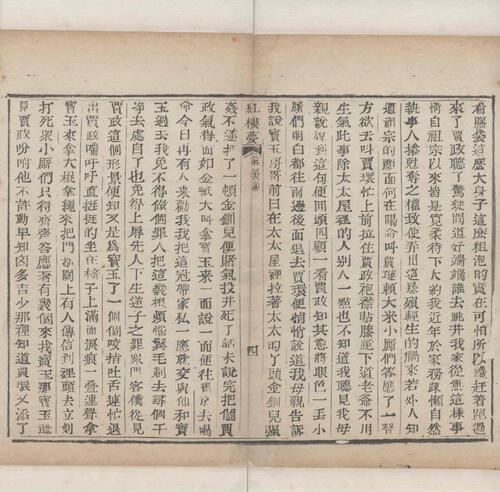 看腦袋這麼大身子這麼粗泡的實在可怕所以纔赶着跑過
來了賈政聽了驚疑問道好端端誰去跳井我家從無這樣事
情自祖宗以來皆是寬柔待下大約我近年於家務疎懶自然
執事人操尅奪之權致使弄出這暴殞輕生的禍來若外人知
道祖宗的顏面何在喝命叫賈璉賴大來小厮們答應了一聲
方欲去叫賈環忙上前拉住賈政袍襟貼膝跪下道老爺不用
生氣此事除太太屋裡的人別人一點也不知道我聽見我母
親說說到這句便回頭四顧一看賈政知其意將眼色一丢小
厮們明白都往兩邊後面退去賈環便悄悄說道我母親告訴
我說寶玉哥哥前日在太太屋裡拉著太太的丫頭金釧兒強
紅樓夢 第三三回 四
姦不遂打了一頓金釧兒便賭氣投井死了話未說完把個賈
政氣得面如金紙大叫拿寶玉來一面說一面便往書房去喝
命今日再有人來勸我我把這冠帶家私一應就交與他和寶
玉過去我免不得做個罪人把這幾根煩惱鬢毛剃去尋個干
淨去處自了也免得上辱先人下生逆子之罪衆門客僕從見
賈政這個形景便知又是為寶玉了一個個咬指吐舌連忙退
出賈政喘吁吁直挺挺的坐在椅子上滿面淚痕一疊連聲拿
寶玉來拿大棍拿繩來把門都關上有人傳信到裡頭去立刻
打死衆小厮們只得齊齊答應着有幾個來找寶玉那寶玉聽
見賈政吩咐他不許動早知凶多吉少那裡知道賈環又添了